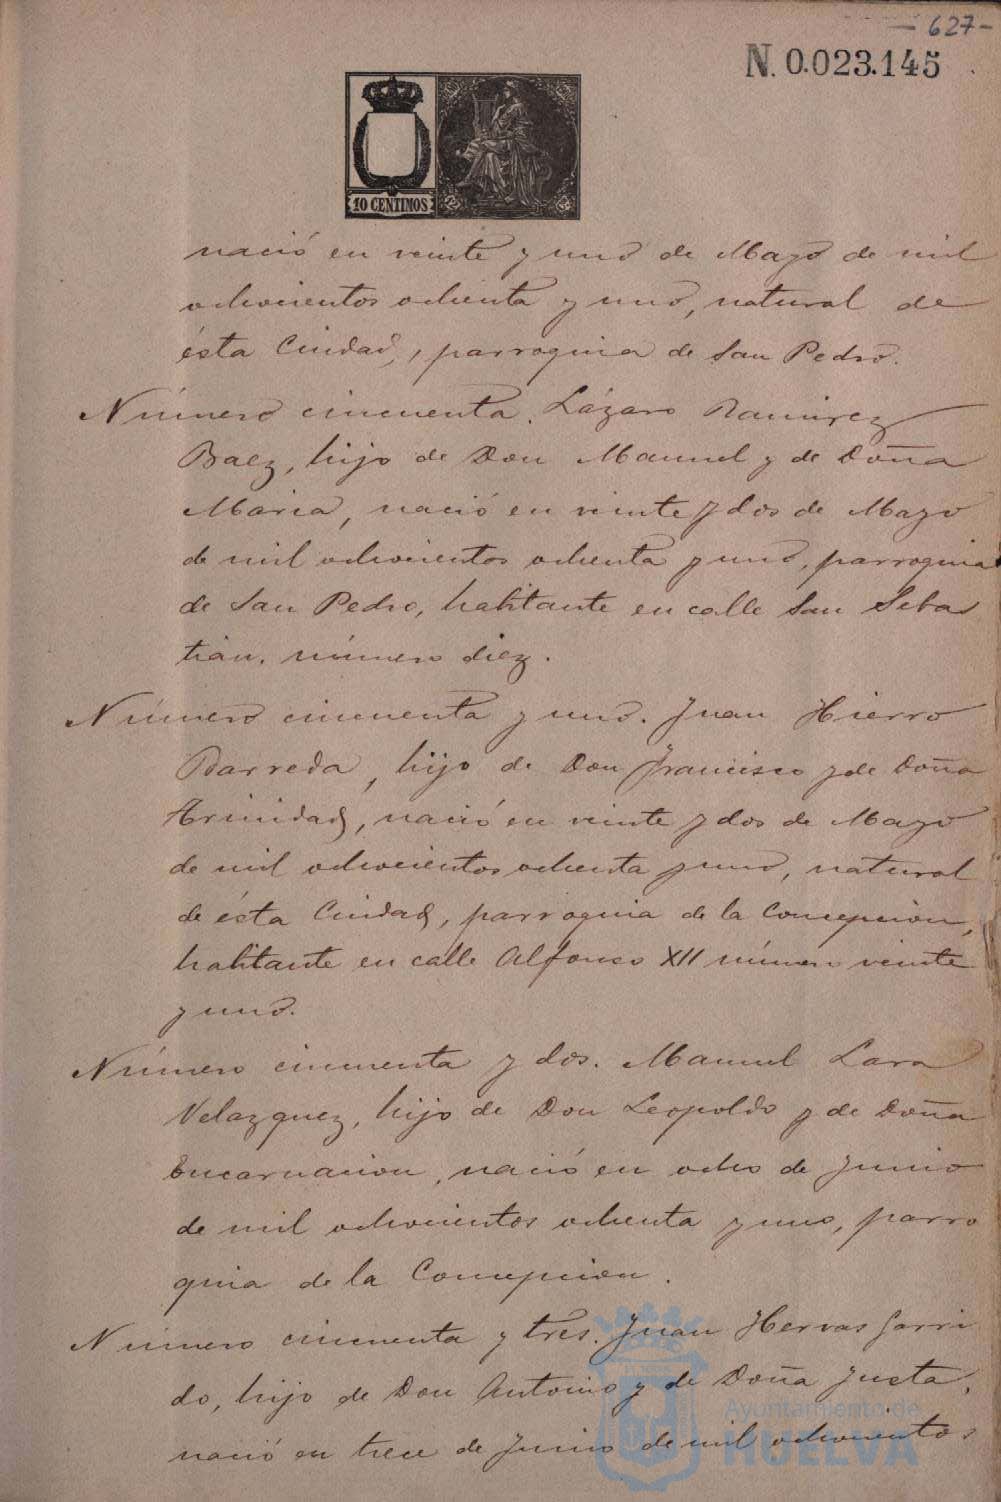 - 627 -
N. 0.023.145
10 CENTIMOS
nació en veinte y uno de Mayo de mil
ochocientos ochenta y uno, natural de
ésta Ciudad, parroquia de San Pedro.
Número cincuenta. Lázaro Ramirez
Baez, hijo de Don Manuel y de Doña
Maria, nació en veinte y dos de Mayo
de mil ochocientos ochenta y uno, parroquia
de San Pedro, habitante en calle San Sebas
tián, número diez.
Número cincuenta y uno. Juan Hierro
Barreda, hijo de Don Francisco y de Doña
Trinidad, nació en veinte y dos de Mayo
de mil ochocientos ochenta y uno, natural
de ésta Ciudad, parroquia de la Concepcion,
habitante en calle Alfonso XII número veinte
y uno.
Número cincuenta y dos. Manuel Lara
Velazquez, hijo de Don Leopoldo y de Doña
Encarnacion, nació en ocho de Junio
de mil ochocientos ochenta y uno, parro
quia de la Concepcion.
Número cincuenta y tres. Juan Hervas Garri
do, hijo de Don Antonio y de Doña Justa,
nació en trece de Junio de mil ochocientos
Ayuntamiento de
HUELVA